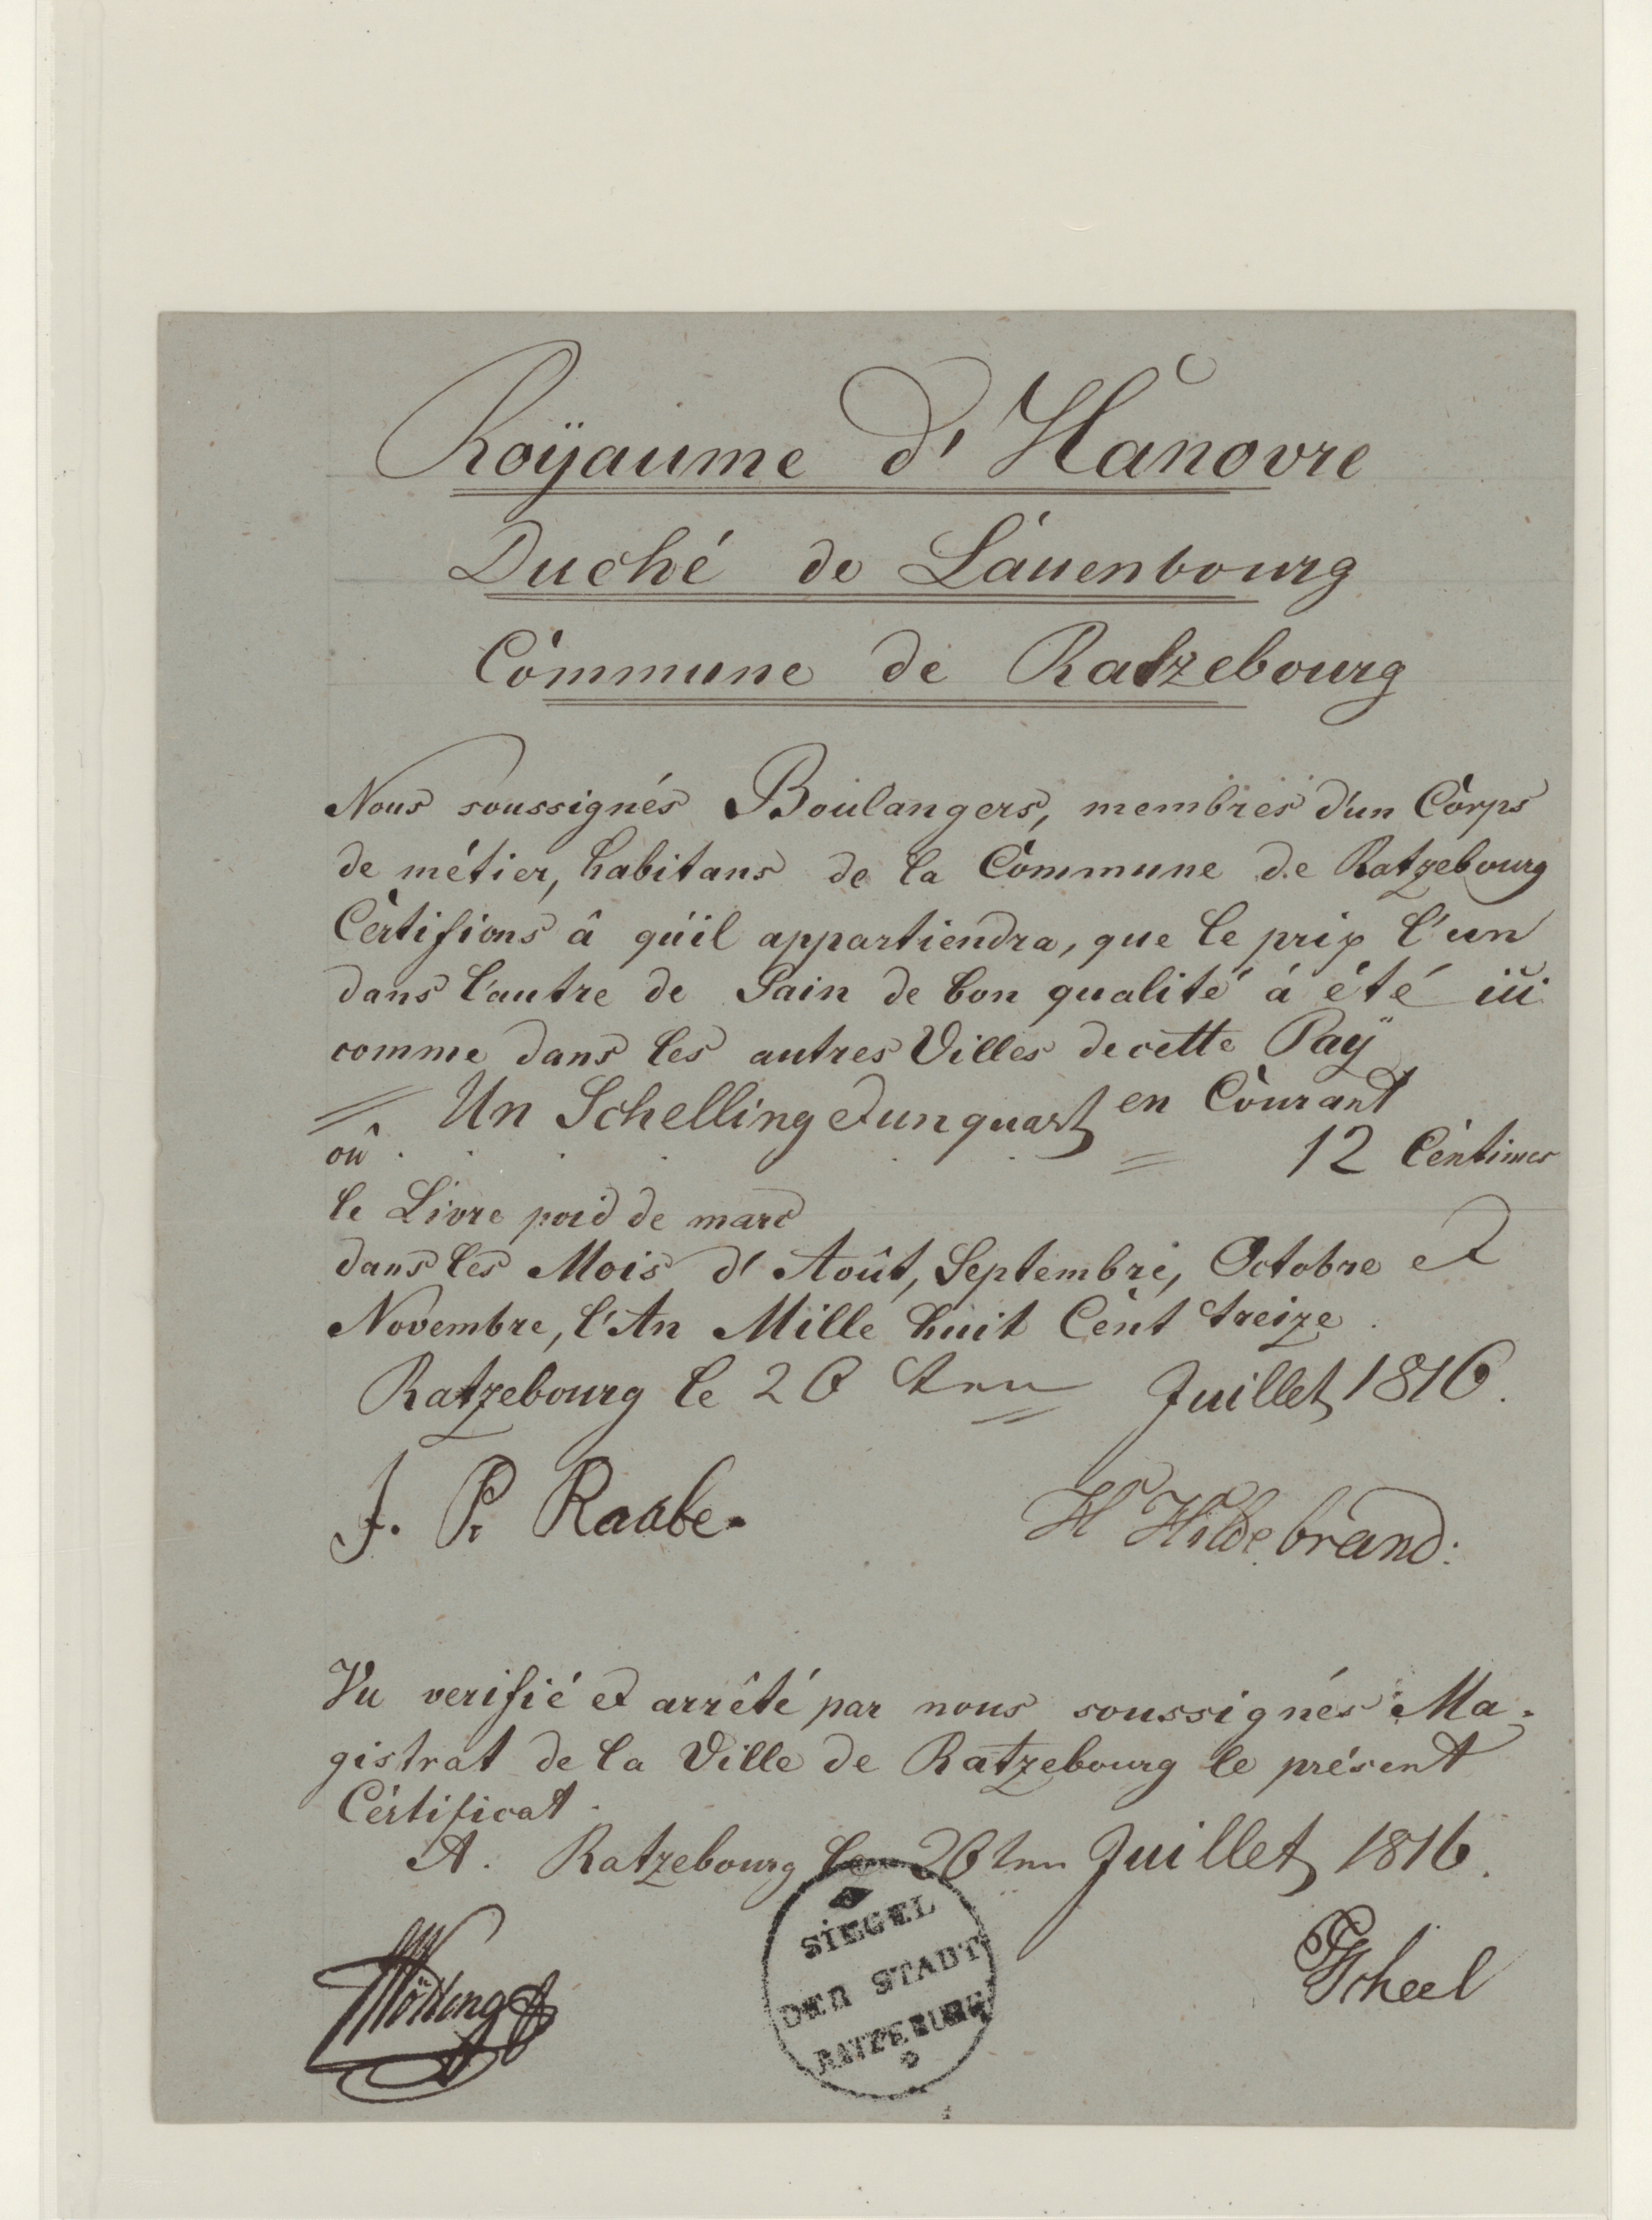 Roÿaume d'Hanovre
Duché de Lauenbourg
Commune de Ratzebourg
Nous soussignés Boulangers, membres d'un Corps
de métier, habitans de la Commune de Ratzebourg
Certifions â qu'il appartiendra, que le prix l'un
dans l'autre de Pain de bon qualité á été ici
comme dans les autres Villes de cette Paÿ
Un Schelling et un quart en Courant
oû 12 Centimes
le Livre poid de marc
dans les Mois d'Août, Septembre, Octobre et
Novembre, l'An Mille huit Cent treize.
Ratzebourg le 26 Juillet 1816.
J. P. Raabe.
H Hildebrand:
Vu verifié et arrêté par nous soussignés Ma-
gistrat de la Ville de Ratzebourg le présent
Certificat.
A. Ratzebourg le 26 Juillet 1816.
Scheel
SIEGEL
DER STADT
RATZEBURG